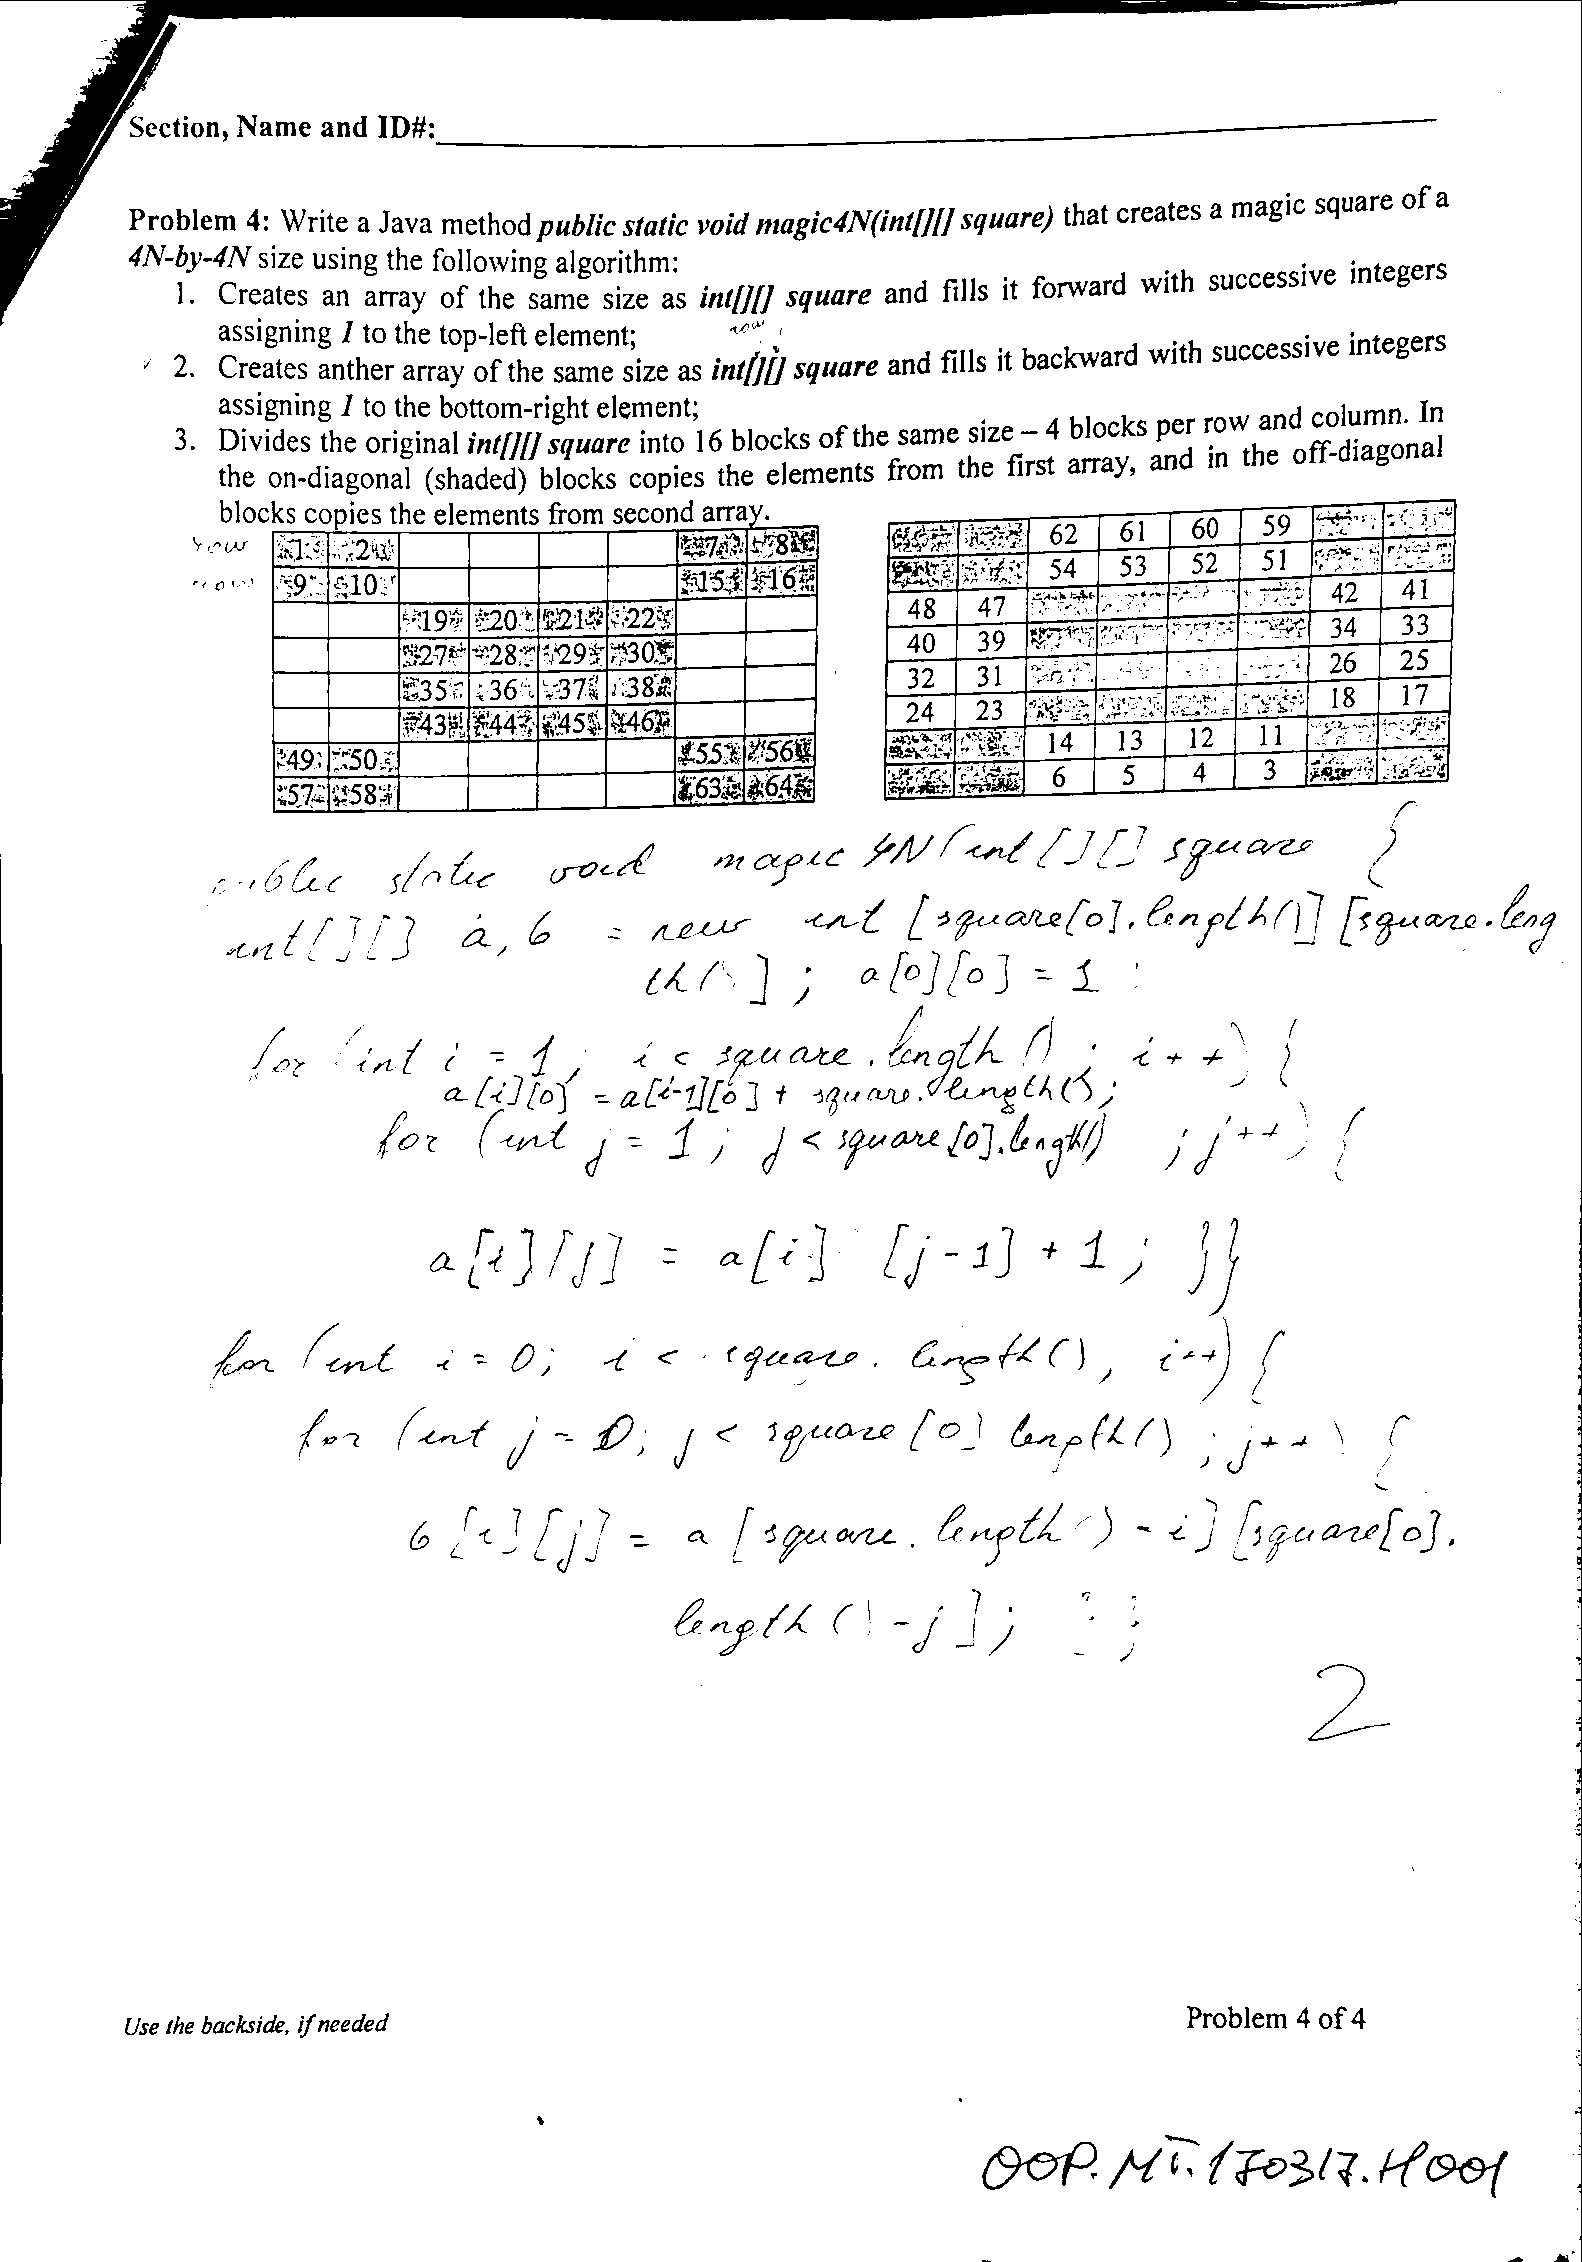 Section, Name and ID#:
Problem 4: Write a Java method public static void magic4N(int[][] square) that creates a magic square of a
4N-by-4N size using the following algorithm:
1. Creates an array of the same size as int[][] square and fills it forward with successive integers
assigning 1 to the top-left element;
row
2. Creates anther array of the same size as int[][] square and fills it backward with successive integers
assigning 1 to the bottom-right element;
3. Divides the original int[][] square into 16 blocks of the same size – 4 blocks per row and column. In
the on-diagonal (shaded) blocks copies the elements from the first array, and in the off-diagonal
blocks copies the elements from second array.
row 1 2 7 8
row 9 10 15 16
19 20 21 22
27 28 29 30
35 36 37 38
43 44 45 46
49 50 55 56
57 58 63 64
62 61 60 59
54 53 52 51
48 47 42 41
40 39 34 33
32 31 26 25
24 23 18 17
14 13 12 11
6 5 4 3
public static void magic 4N (int [][] square {
int[][] a, b = new int [square[0].length()] [square.leng
th()]; a[0][0] = 1 ;
for (int i = 1; i < square.length (); i++) {
a[i][0] = a[i-1][0] + square.length();
for (int j = 1; j < square[0].length() ; j++) {
a[i][j] = a[i] [j-1] + 1; }}
for (int i = 0; i < square. length(), i++) {
for (int j = 0; j < square [0] length() ; j++) {
b [i][j] = a [square. length() - i] [square[0].
length () - j ]; } }
2
Use the backside, if needed
Problem 4 of 4
OOP.MT.170317.H001